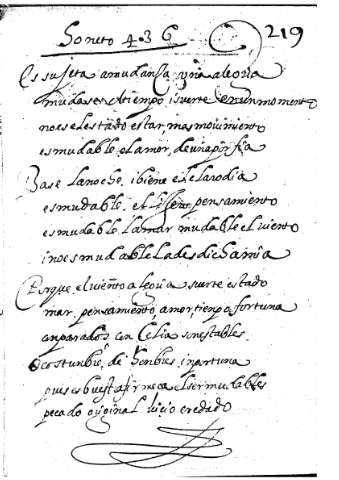 Soneto 436 219
Es sujeta a mudança y nia alegria
mudase el tiempo, i suerte en un momento
no es el estado estar, mas movimiento
es mudable el amor, de una porfia
Base la noche, i biene el claro dia
es mudable, el pensamiento
es mudable la mar, mudable el viento
i no es mudable la desdicha mia
Porque el viento alegria suerte estado
mar, pensamiento, amor, tiempo, fortuna
con Celia son estables
O costunbre, de Honbres inportuna
pues es buestra firmeca el ser mudables
pecado original heredado